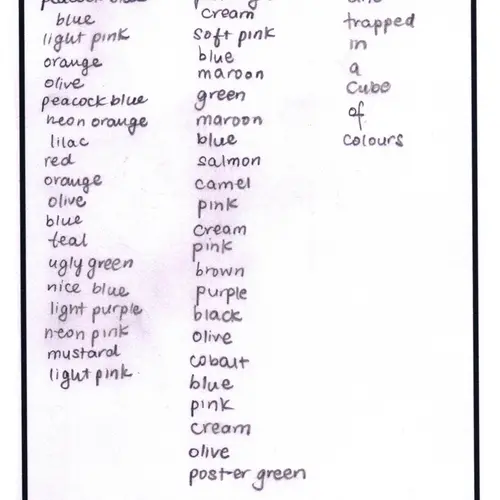 peacock blue
blue
light pink
orange
olive
peacock blue
neon orange
lilac
red
orange
olive
blue
teal
ugly green
nice blue
light purple
neon pink
mustard
light pink
cream
soft pink
blue
maroon
green
maroon
blue
salmon
camel
pink
cream
pink
brown
purple
black
olive
cobalt
blue
pink
cream
olive
poster green
trapped
in
a
cube
of
colours